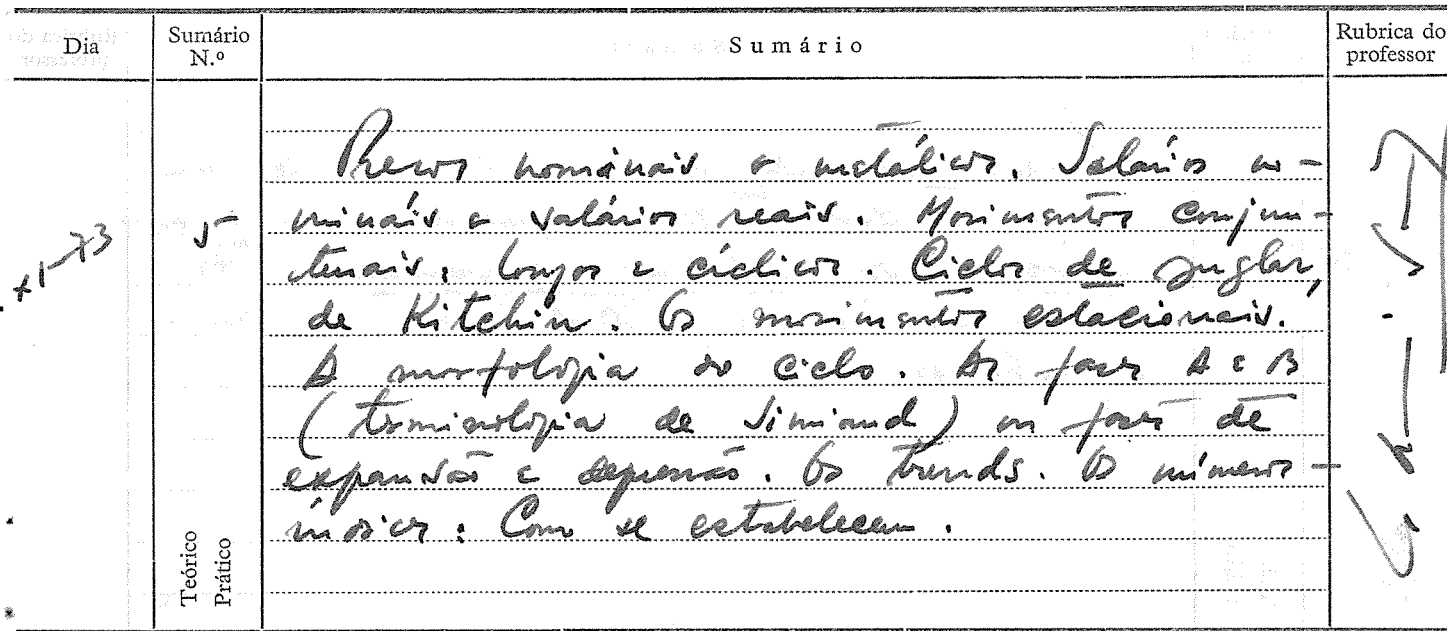 Dia
Sumário N.º
Sumário
Rubrica do professor
Preços nominais e metálicos. Salários no-
minais e salários reais. Movimentos conjun-
turais, longos e cíclicos. Ciclos de Juglar,
5
de Kitchin. Os movimentos estacionais.
A morfologia do ciclo. As fases A e B
(terminologia de Simiand) ou fases de
expansão e depressão. Os trends. Os números-
índices: Como se estabelecem.
Teórico
Prático